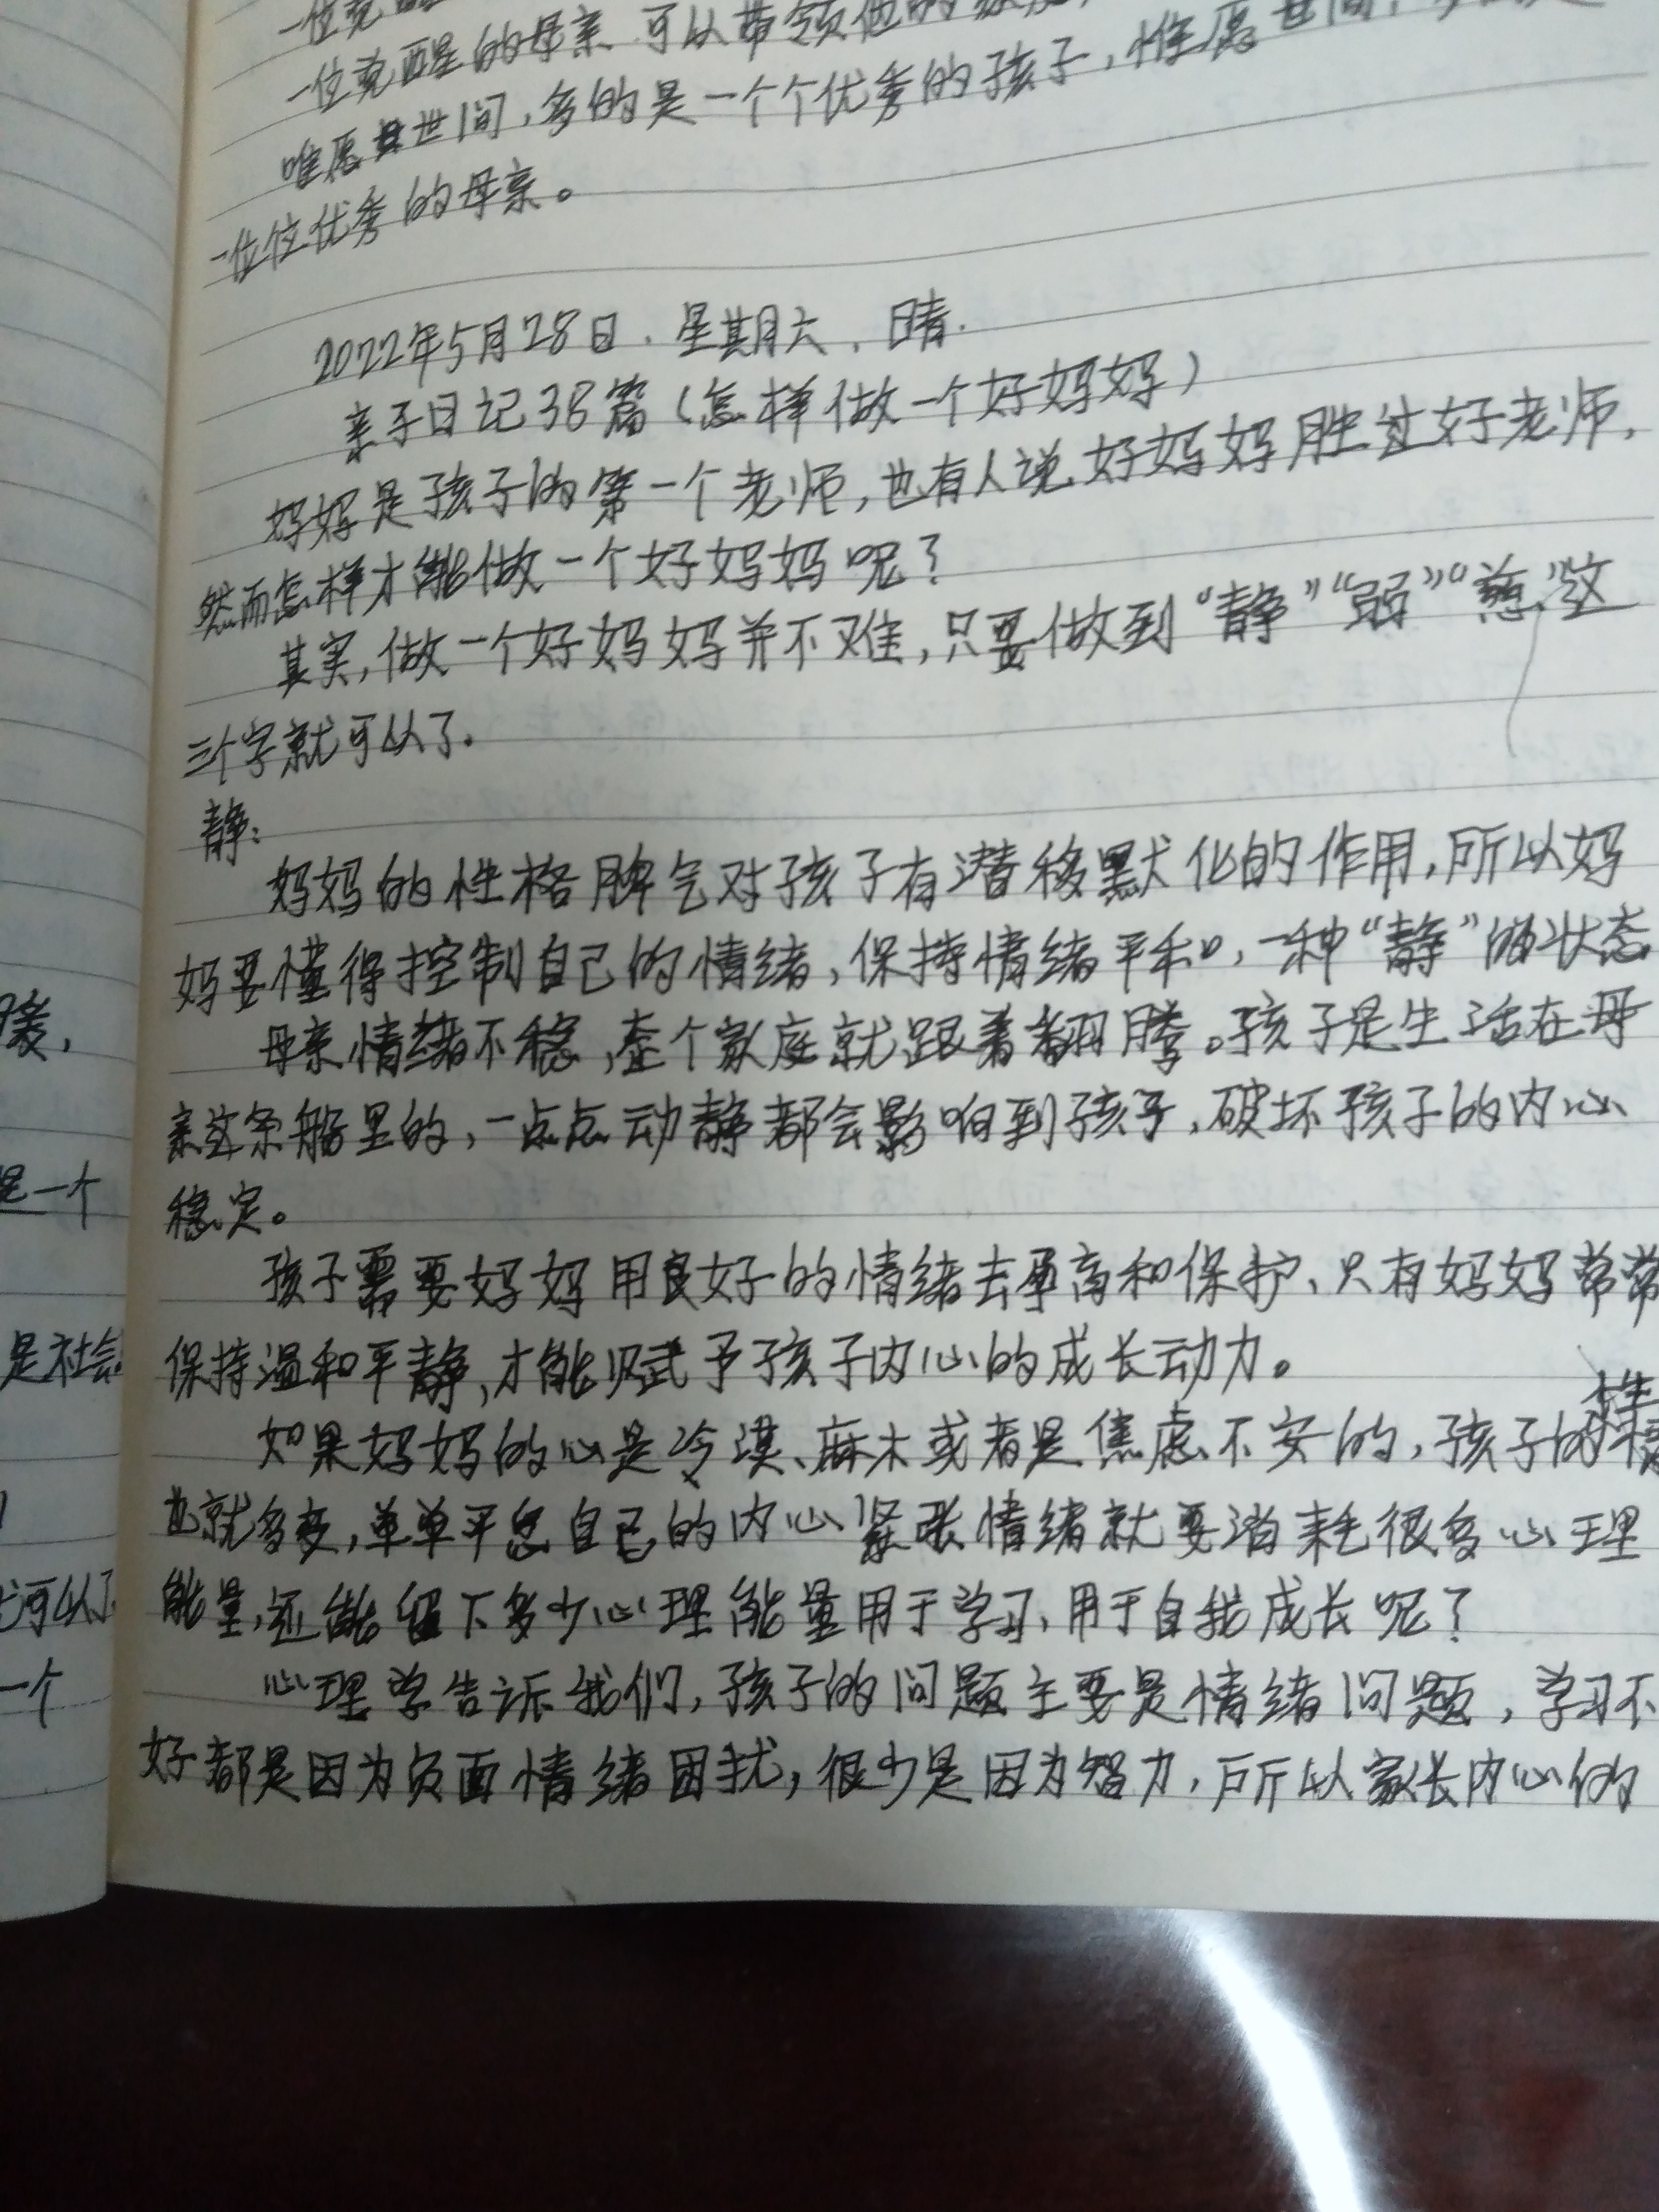 一位觉醒的母亲可以带领他的
唯愿世间,多的是一个个优秀的孩子,惟愿世间,
一位位优秀的母亲。
2022年5月28日.星期六、晴.
亲子日记38篇(怎样做一个好妈妈)
妈妈是孩子的第一个老师,也有人说好妈妈胜过好老师,
然而怎样才能做一个好妈妈呢?
其实,做一个好妈妈并不难,只要做到“静”“弱”“慈”这
三个字就可以了.
静:
妈妈的性格脾气对孩子有潜移默化的作用,所以妈
妈要懂得控制自己的情绪,保持情绪平和,一种“静”的状态
母亲情绪不稳,整个家庭就跟着翻腾。孩子是生活在母
亲这条船里的,一点点动静都会影响到孩子,破坏孩子的内心
稳定。
孩子需要妈妈用良好的情绪去孕育和保护、只有妈妈常常
保持温和平静,才能赋予孩子内心的成长动力。
如果妈妈的心是冷漠、麻木或者是焦虑不安的,孩子的情绪
也就多变,单单平息自己的内心紧张情绪就要消耗很多心理
能量,还能留下多少心理能量用于学习、用于自我成长呢?
心理学告诉我们,孩子的问题主要是情绪问题,学习不
好都是因为负面情绪困扰,很少是因为智力,所以家长内心的
暖,
是一个
是社会
可以了
一个